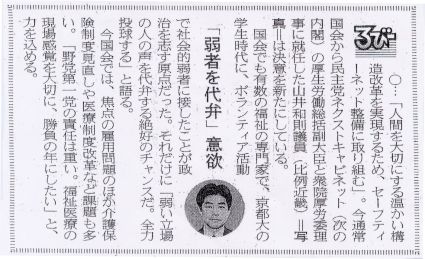 ろびー
〇…「人間を大切にする温かい構
造改革を実現するため、セーフティ
ーネット整備に取り組む」。今通常
国会から民主党ネクストキャビネット（次の
内閣）の厚生労働総括副大臣と衆院厚労委理
事に就任した山井和則議員（比例近畿）＝写
真＝は決意を新たにしている。
国会でも有数の福祉の専門家で、京都大の
学生時代に、ボランティア活動
「弱者を代弁」意欲
で社会的弱者に接したことが政
治を志す原点だった。それだけに「弱い立場
の人の声を代弁する絶好のチャンスだ。全力
投球する」と語る。
今国会では、焦点の雇用問題のほか介護保
険制度見直しや医療制度改革など課題も多
い。「野党第一党の責任は重い。福祉医療の
現場感覚を大切に、勝負の年にしたい」と、
力を込める。